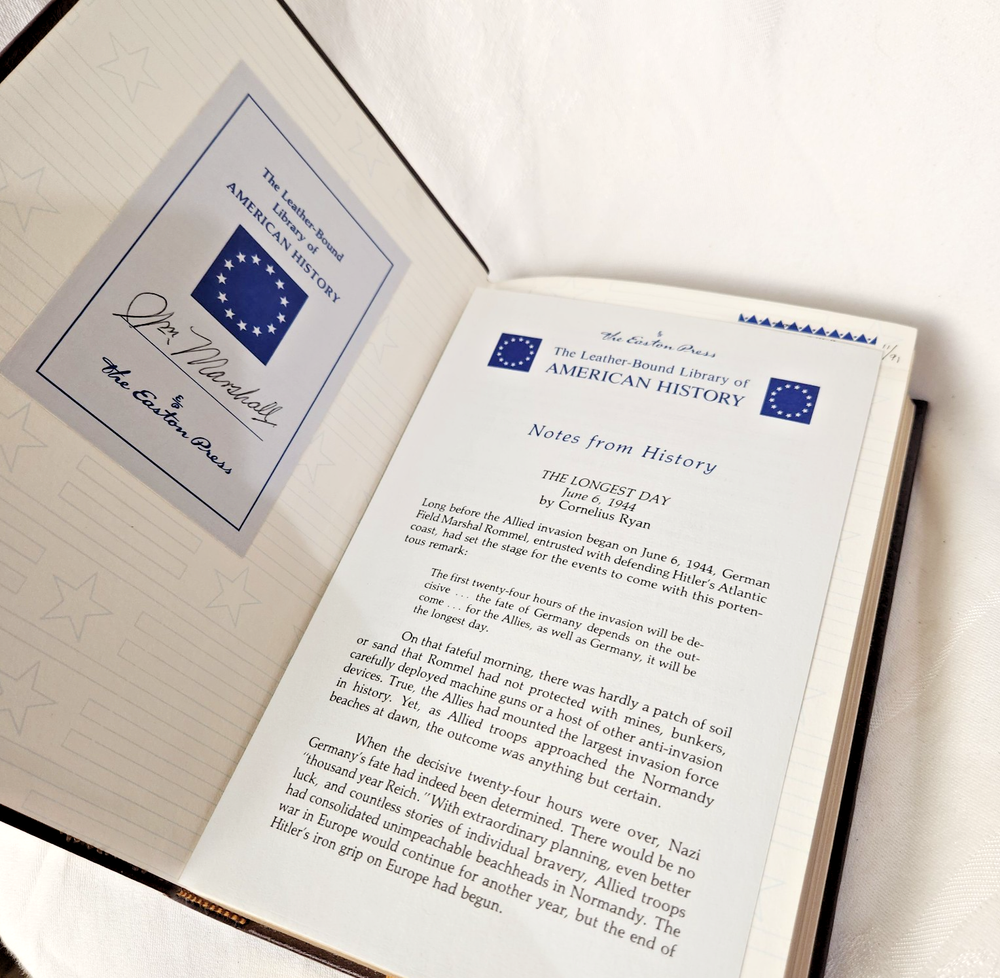 The Leather-Bound
Library of
AMERICAN HISTORY
Marshall
The Easton Press
The Easton Press
The Leather-Bound Library of
AMERICAN HISTORY
Notes from History
THE LONGEST DAY
June 6, 1944
by Cornelius Ryan
Long before the Allied invasion began on June 6, 1944, German
Field Marshal Rommel, entrusted with defending Hitler's Atlantic
coast, had set the stage for the events to come with this porten-
tous remark:
The first twenty-four hours of the invasion will be de-
cisive . . . the fate of Germany depends on the out-
come . . . for the Allies, as well as Germany, it will be
the longest day.
On that fateful morning, there was hardly a patch of soil
or sand that Rommel had not protected with mines, bunkers,
carefully deployed machine guns or a host of other anti-invasion
devices. True, the Allies had mounted the largest invasion force
in history. Yet, as Allied troops approached the Normandy
beaches at dawn, the outcome was anything but certain.
When the decisive twenty-four hours were over, Nazi
Germany's fate had indeed been determined. There would be no
"thousand year Reich. "With extraordinary planning, even better
luck, and countless stories of individual bravery, Allied troops
had consolidated unimpeachable beachheads in Normandy. The
war in Europe would continue for another year, but the end of
Hitler's iron grip on Europe had begun.